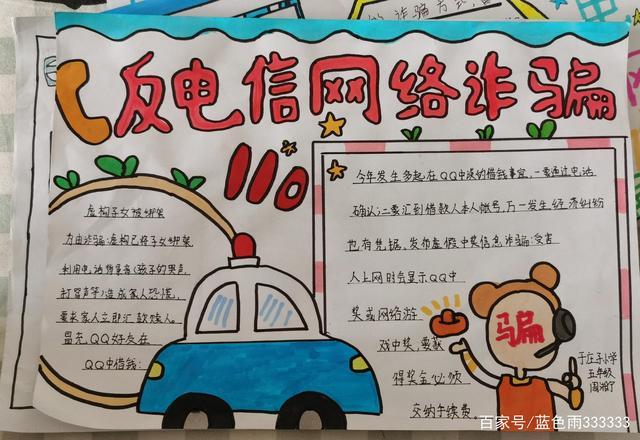 诈骗方式
反电信网络诈骗
110
虚构子女被绑架
为由诈骗:虚构已将子女绑架
利用电话给事者(孩子的哭声
打骂声等)造成家人恐慌,
要求家人立即汇款赎人。
冒充QQ好友在
QQ中借钱:
今年发生多起,在QQ中谈的借钱事宜,一要通过电话
确认;二要汇到借款人本人帐号,万一发生经济纠纷
也有凭据。发布虚假中奖信息诈骗:受害
人上网时会显示QQ中
奖或网络游
戏中奖,要获
得奖金必须
交纳手续费。
骗
于庄子小学
五年级
百家号/蓝色雨333333